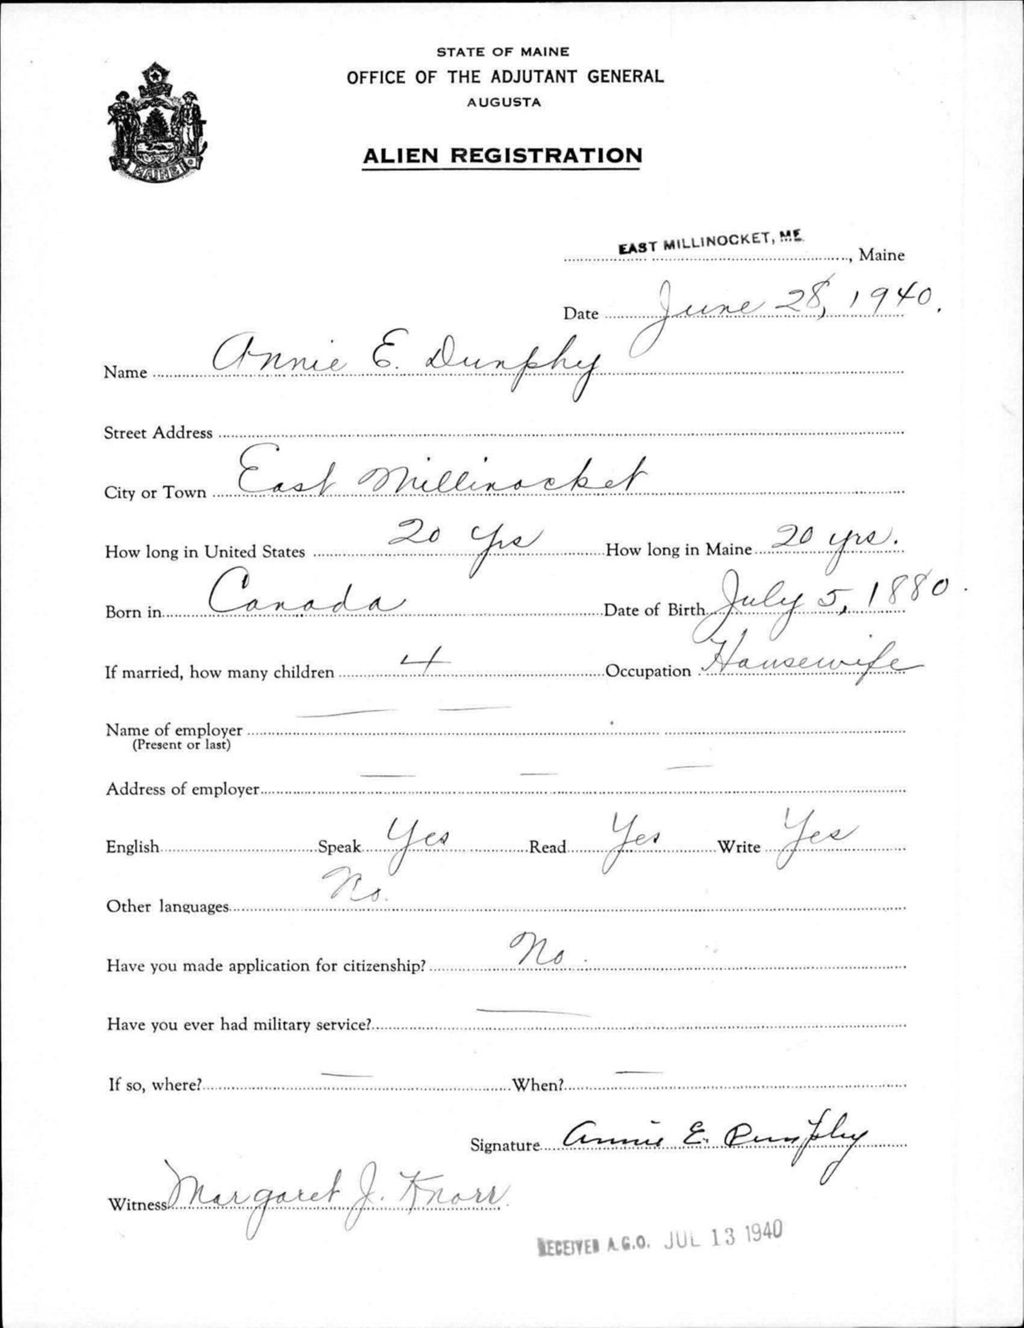 STATE OF MAINE
OFFICE OF THE ADJUTANT GENERAL
AUGUSTA
ALIEN REGISTRATION
MAINE
EAST MILLINOCKET, ME. , Maine
Date June 28, 1940.
Name Annie E. Dunphy
Street Address
City or Town East Millinocket
How long in United States 20 yrs How long in Maine 20 yrs.
Born in Canada Date of Birth July 5, 1880.
If married, how many children 4 Occupation Housewife
Name of employer
(Present or last)
Address of employer
English Speak Yes Read Yes Write Yes
Other languages No.
Have you made application for citizenship? No.
Have you ever had military service?
If so, where? When?
Signature Annie E. Dunphy
Witness Margaret J. Knorr
RECEIVED A.G.O. JUL 13 1940